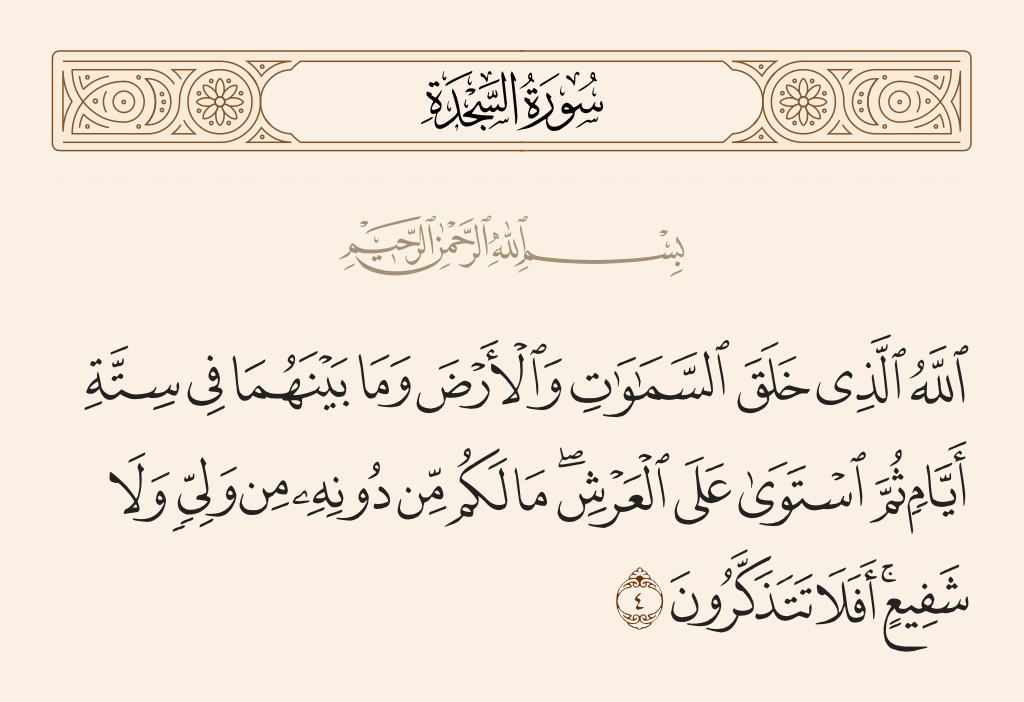 سُورَةُ السَّجْدَةِ
بِسْمِ ٱللَّهِ ٱلرَّحْمَٰنِ ٱلرَّحِيمِ
ٱللَّهُ ٱلَّذِى خَلَقَ ٱلسَّمَٰوَٰتِ وَٱلْأَرْضَ وَمَا بَيْنَهُمَا فِى سِتَّةِ
أَيَّامٍ ثُمَّ ٱسْتَوَىٰ عَلَى ٱلْعَرْشِ ۖ مَا لَكُم مِّن دُونِهِۦ مِن وَلِىٍّ وَلَا
شَفِيعٍ ۚ أَفَلَا تَتَذَكَّرُونَ ٤